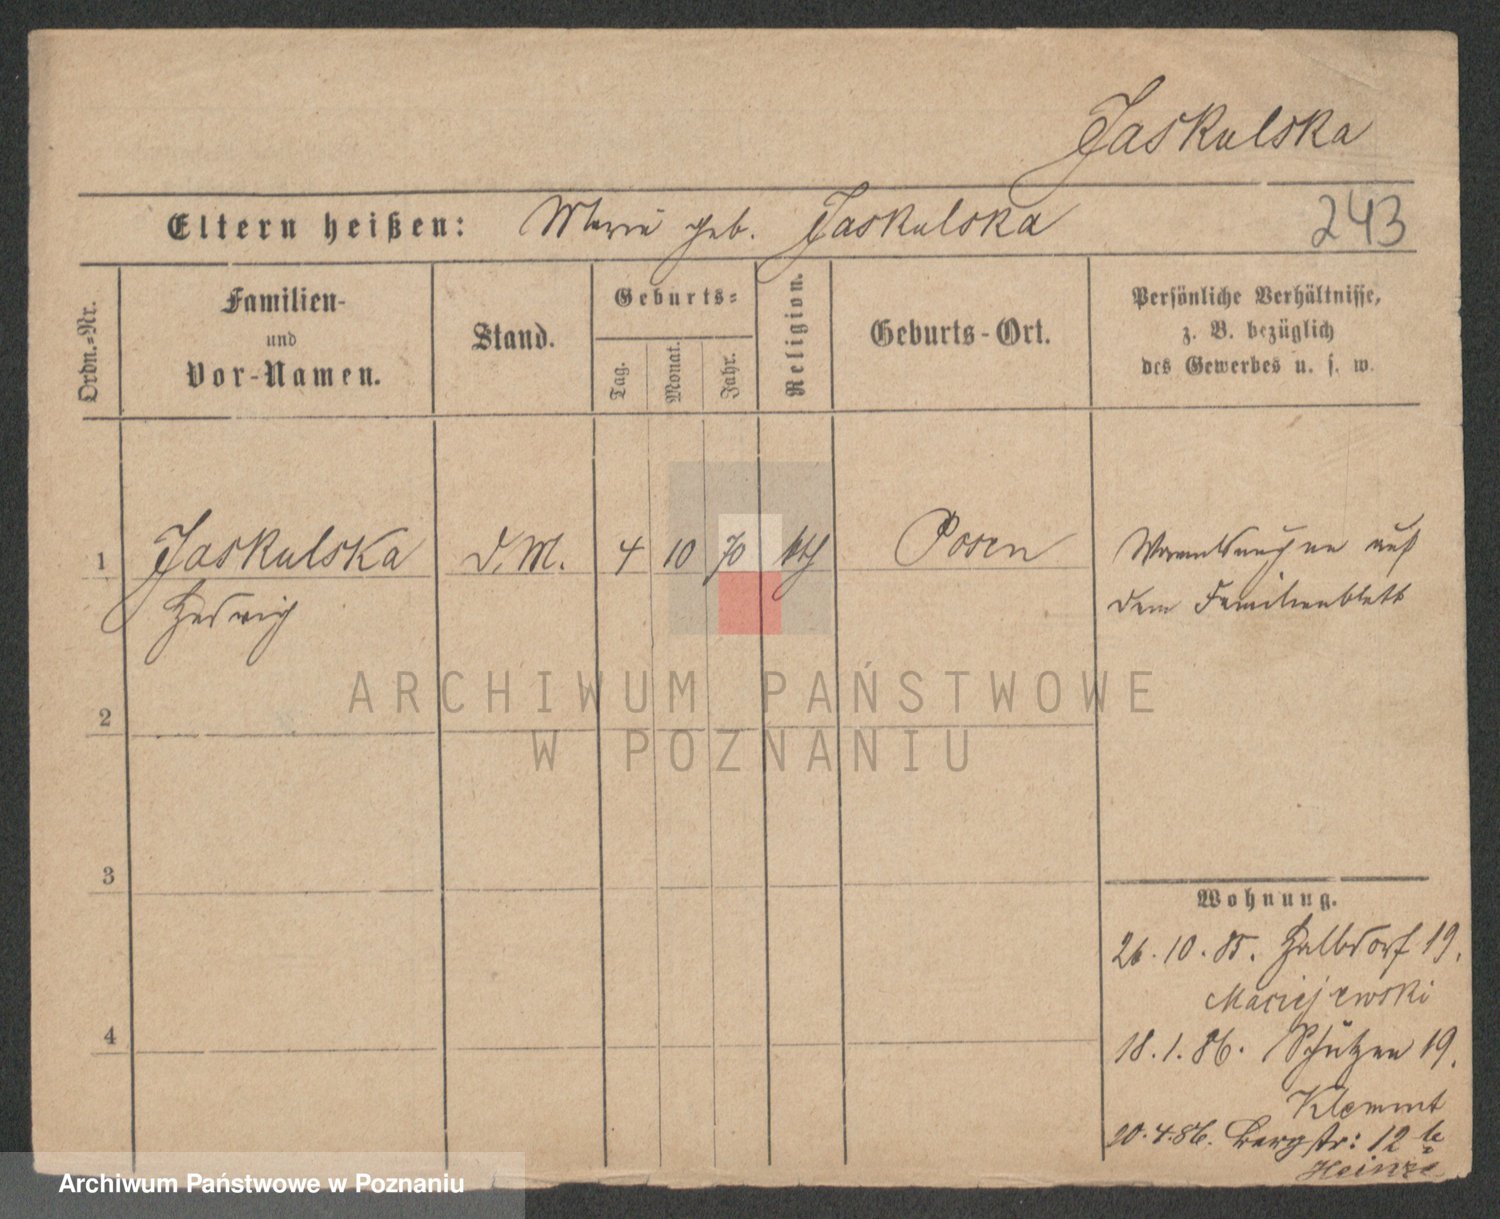 Jaskulska
Eltern heißen: Marie geb. Jaskulska
243
Ordn.-Nr.
Familien-
und
Vor-Namen.
Stand.
Geburts-
Tag.
Monat.
Jahr.
Religion.
Geburts-Ort.
Persönliche Verhältnisse,
z. B. bezüglich
des Gewerbes u. s. w.
1 Jaskulska D.M. 4 10 70 kth Posen
Hedwig
auf
dem Familienblatt
2
3
4
Wohnung.
26.10.85. Halbdorf 19.
Maciejewski
18.1.86. Schützen 19.
Klemmt
20.4.86. Bergstr: 12
Heinze
ARCHIWUM PAŃSTWOWE
W POZNANIU
Archiwum Państwowe w Poznaniu